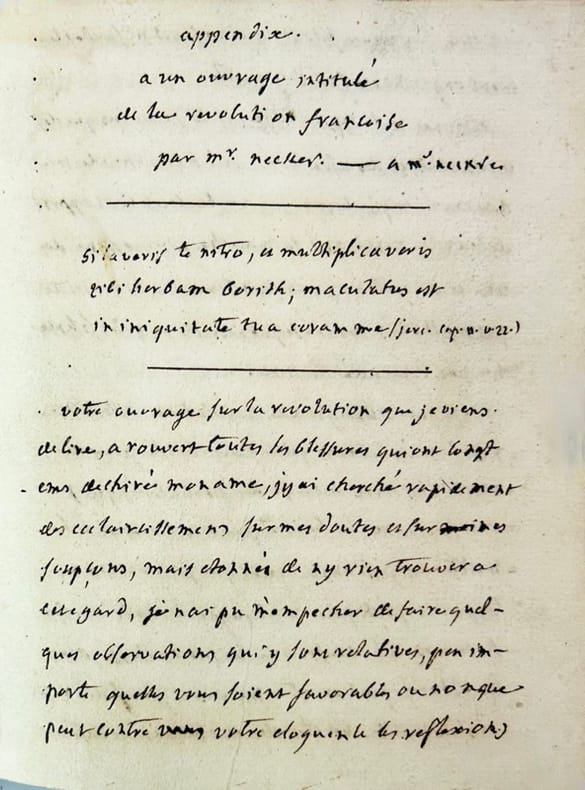 appendix.
a un ouvrage intitulé
de la revolution francoise
par mr. necker. — a mr. necker
si laveris te nitro, et multiplicaveris
tibi herbam borith; maculatus est
in iniquitate tua coram me (jere. cap. II. v. 22.)
votre ouvrage sur la revolution que je viens
de lire, a rouvert toutes les blessures qui ont longt
ems dechiré mon ame, j'y ai cherché rapidement
des eclaircissemens sur mes doutes et sur mes
soupçons, mais etonné de ny rien trouver a
cet egard, je nai pu m'empecher de faire quel-
ques observations qui y sont relatives, peu im-
porte quelles vous soient favorables ou non que
peut contre votre eloquence les reflexions